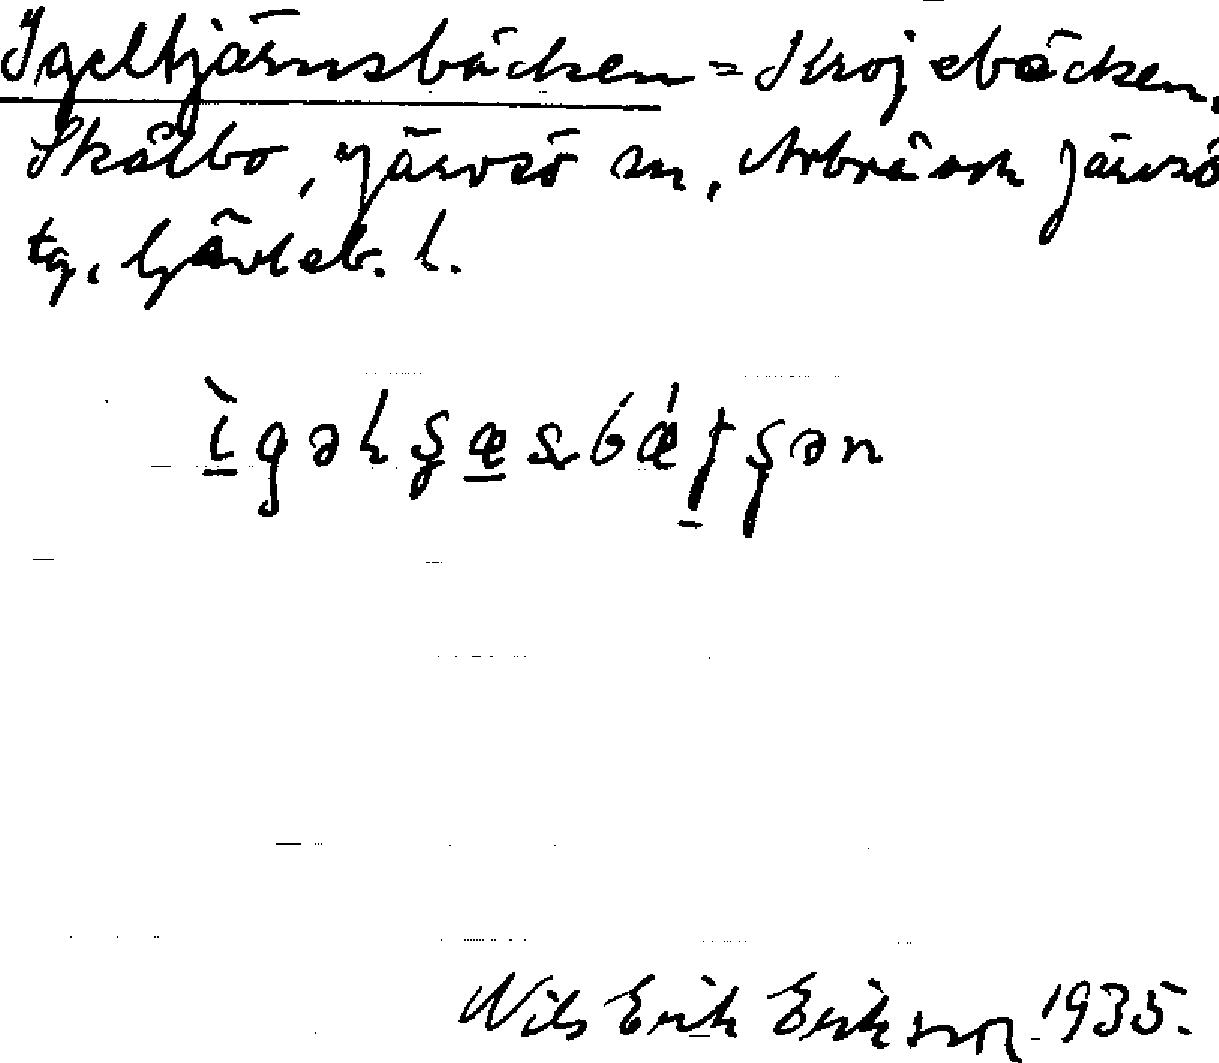 Igeltjärnsbäcken = Krojebäcken,
Skålbo, Järvsö sn, Arbrå och Järvsö
tg, Gävleb. l.
Nils Erik Erikson 1935.